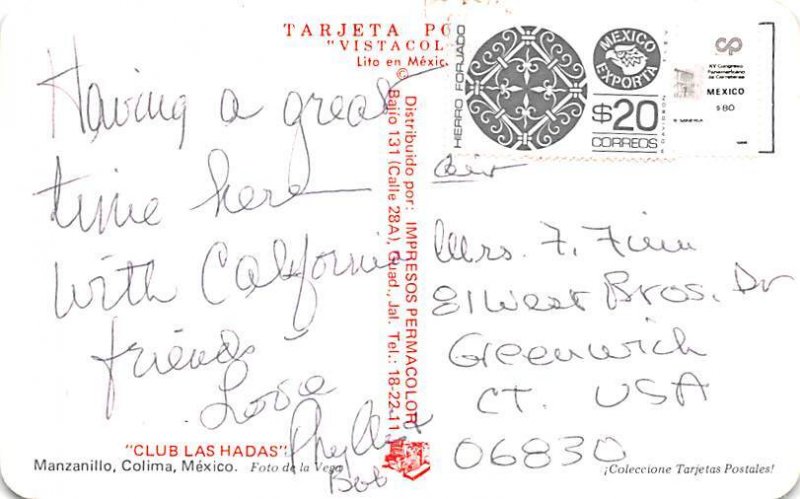 TARJETA PO
"VISTACOL
Lito en Méxic
©
Distribuido por: IMPRESOS PERMACOLOR
Bajío 131 (Calle 28A), Guad., Jal. Tel.: 18-22-11
Having a great
time here
with California
friends
Love
Phyllis
Bob
"CLUB LAS HADAS"
Manzanillo, Colima, México. Foto de la Vega
HIERRO FORJADO
MEXICO
EXPORTA
$20
CORREOS
XV Congreso
Panamericano
de Carreteras
MEXICO
$80
air
Mrs. F. Finn
81 West Bros. Dr
Greenwich
CT. USA
06830
¡Coleccione Tarjetas Postales!